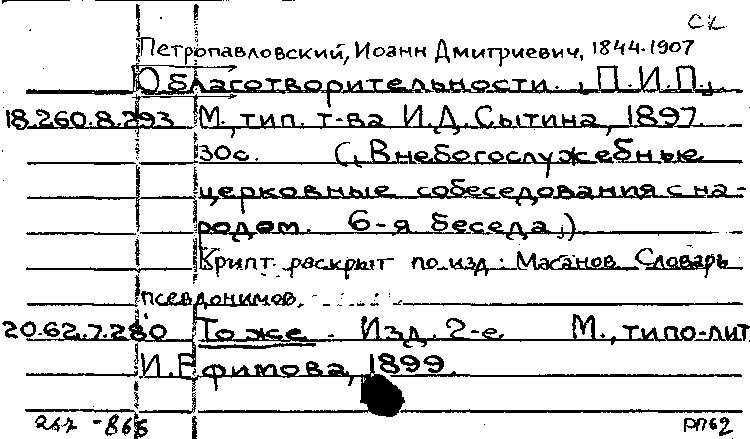 СК
Петропавловский, Иоанн Дмитриевич, 1844-1907
О благотворительности. „П.И.П.„
18.260.8.293 М., тип. т-ва И.Д. Сытина, 1897.
30с. („Внебогослужебные
церковные собеседования с на-
родом. 6-я беседа„)
Крипт. раскрыт по изд.: Масанов. Словарь
псевдонимов.
20.62.7.280 То же. Изд. 2-е. М., типо-лит.
И. Ефимова, 1899.
267 -866
РП62